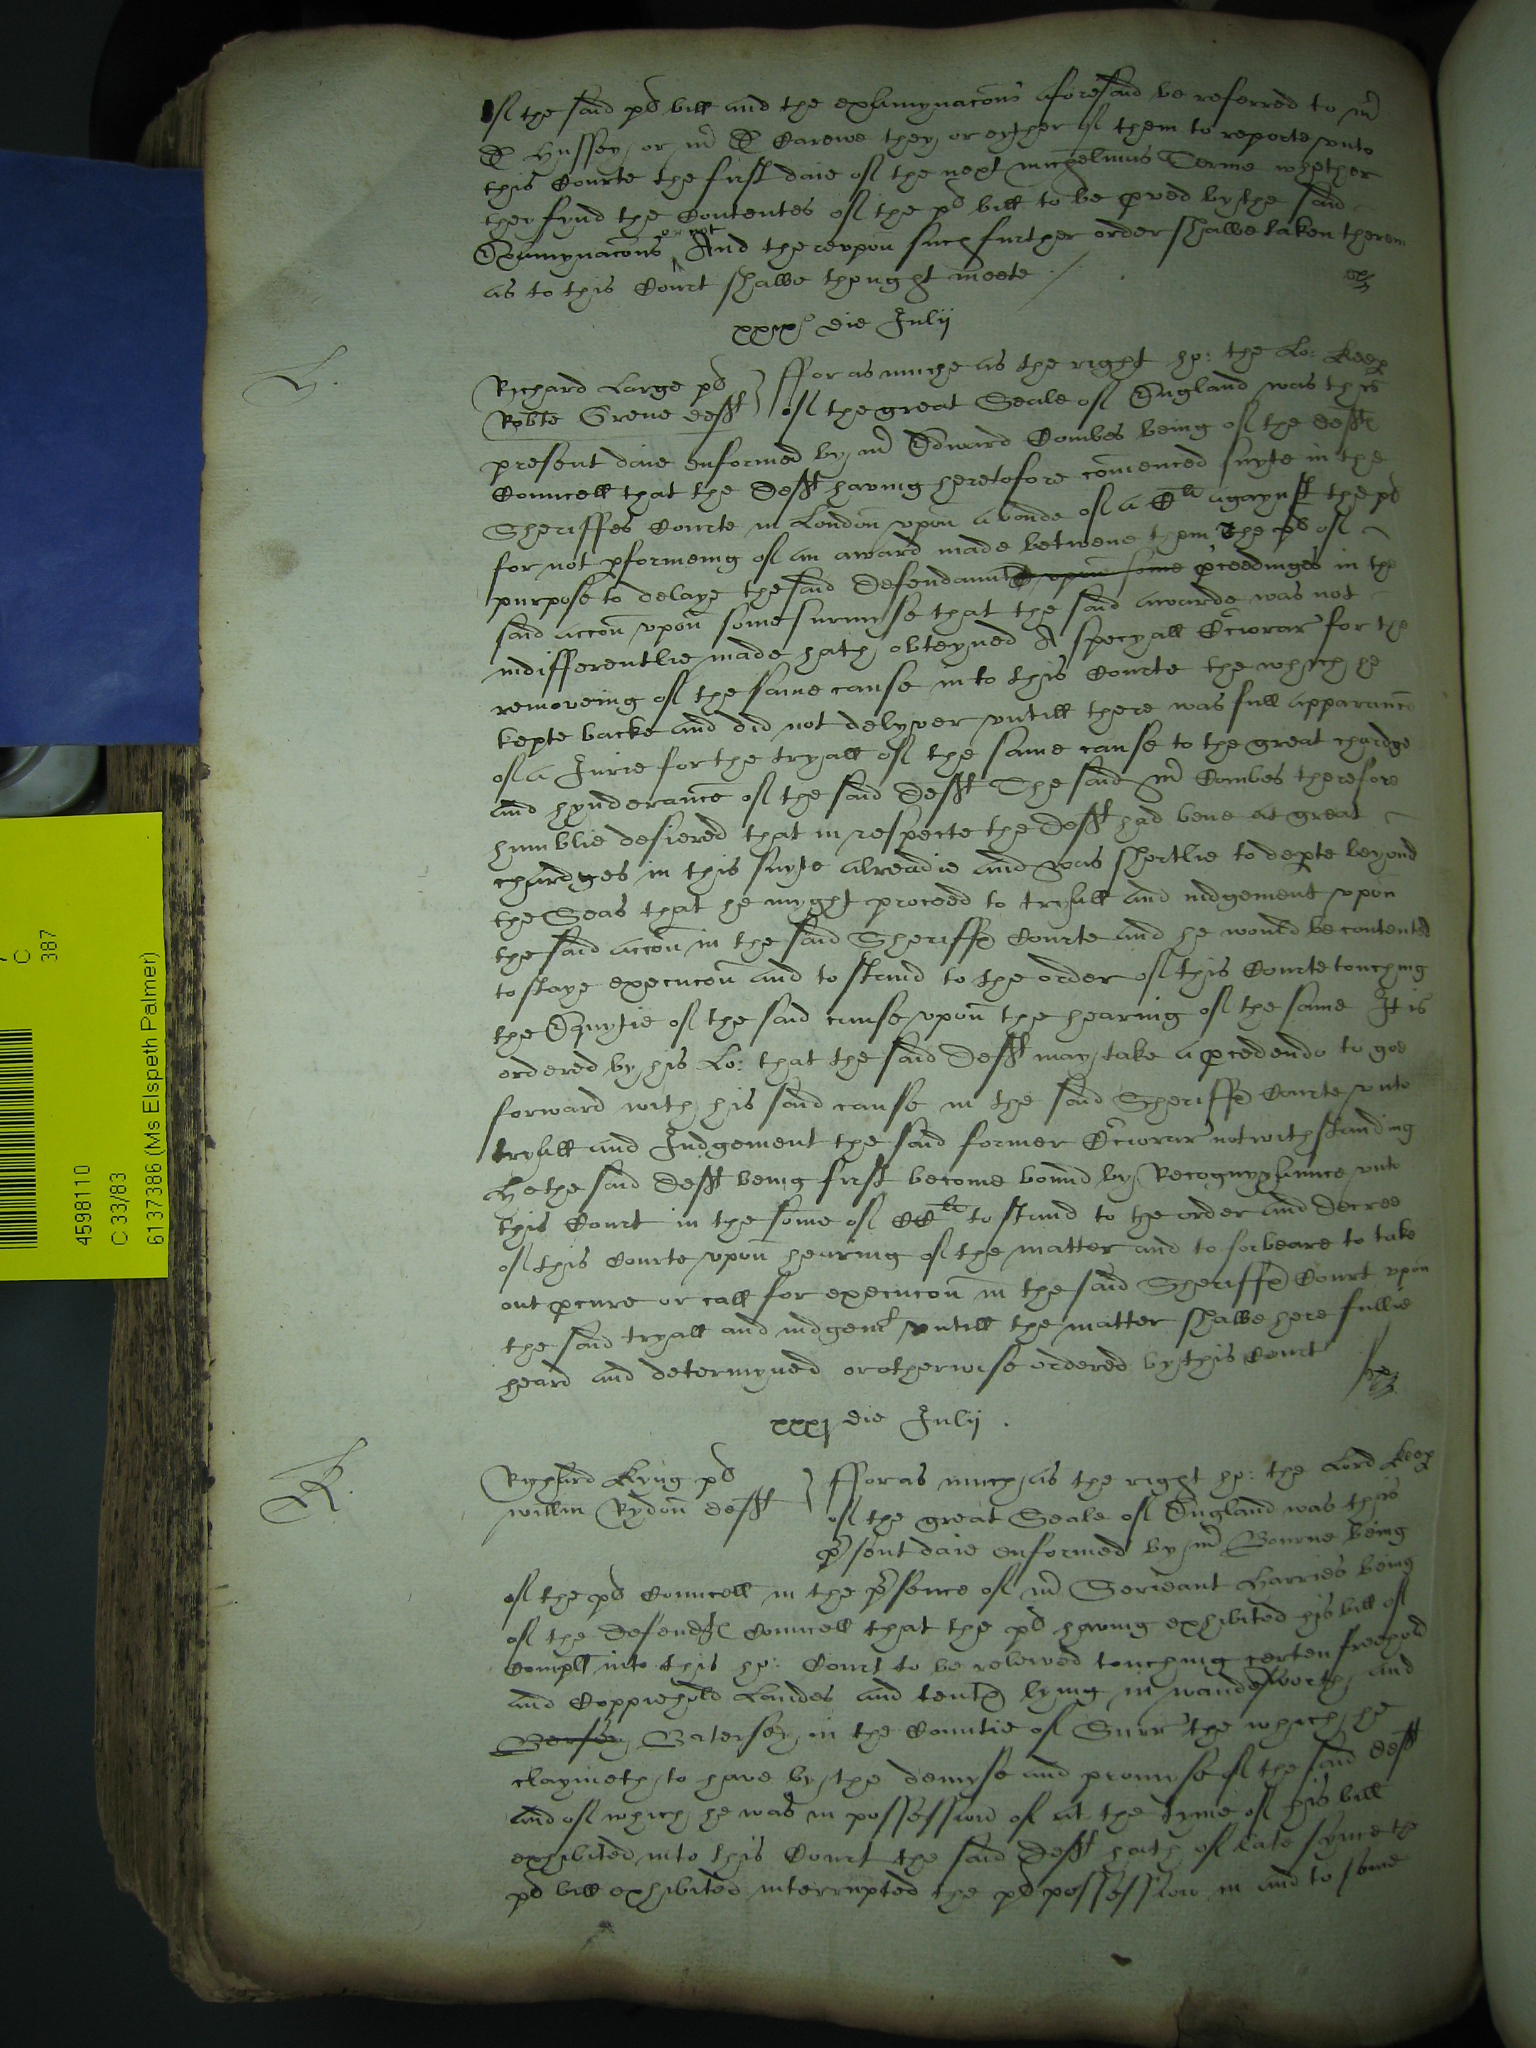 of the said pl bill and the exhamynacons aforesaid be referred to mr
D Hussey, or mr D Carewe they or eyther of them to reporte unto
this Courte the first daie of the next michelmas Terme whether
they fynd the Contentes of the pl bill to be pved by the said
Examynacons or not And thereupon such further order shalbe taken therein
as to this Court shalbe thought meete
xxixo die Julij
L.
Richard Large pl
Robte Grene defft
fforasmuche as the right ho: the Lo: Keep
of the great Seale of England was this
present daie enformed by mr Edward Combes being of the deffts
Councell that the defft having heretofore comenced suyte in the
Sheriffes Courte in London upon a bonde of a Cli agaynst the pl
for not pformeing of an award made betwene them The pl of
purpose to delaye the said defendaunte upon some pceedinges in the
said accon upon some surmyse that the said awarde was not
indifferentlie made hath obteyned A specyall Cciorar for the
removeing of the same cause into this Courte the which he
kepte backe and did not delyver untill there was full apparance
of a Jurie for the tryall of the same cause to the great chardge
and hynderance of the said defft The said mr Combes therefore
humblie desiered that in respecte the defft had bene at great
chardges in this suyte alreadie and was shortlie to depte beyond
the Seas that he myght proceed to tryall and iudgement upon
the said accon in the said Sheriffs Courte and he would be contented
to staye execucon and to stand to the order of this Courte touching
the Equytie of the said cause upon the hearing of the same It is
ordered by his Lo: that the said defft may take a pcedendo to goe
forward with his said cause in the said Sheriffs Courte unto
tryall and Judgement the said former Cciorar notwithstanding
He the said defft being first become bound by Recognyzaunce unto
this Court in the some of CCli to stand to the order and decree
of this Courte upon hearing of the matter and to forbeare to take
out pcure or call for execucon in the said Sheriffs Court upon
the said tryall and iudgemt untill the matter shalbe here fullie
heard and determyned or otherwise ordered by this Court
xxxj die Julij.
K.
Richard Kyng pl
Willm Rydon defft
fforas much as the right ho: the Lord Keep
of the great Seale of England was this
psent daie enformed by mr Bourne being
of the pl Councell in the psence of mr Serieant Harries being
of the defendts Councell that the pl having exhibited his bill of
Complt into this ho: Court to be releived touching certen freehold
and Coppiehold Landes and tents lying in wandesworth and
Bersey Batersey in the Countie of Surr the which he
claymeth to have by the demyse and promyse of the said defft
and of which he was in possession of at the tyme of his bill
exhibited into this Court the said defft hath of late synce the
pl bill exhibited interrupted the pl possession in and to some
4598110
C 33/83
6137386 (Ms Elspeth Palmer)
C
387